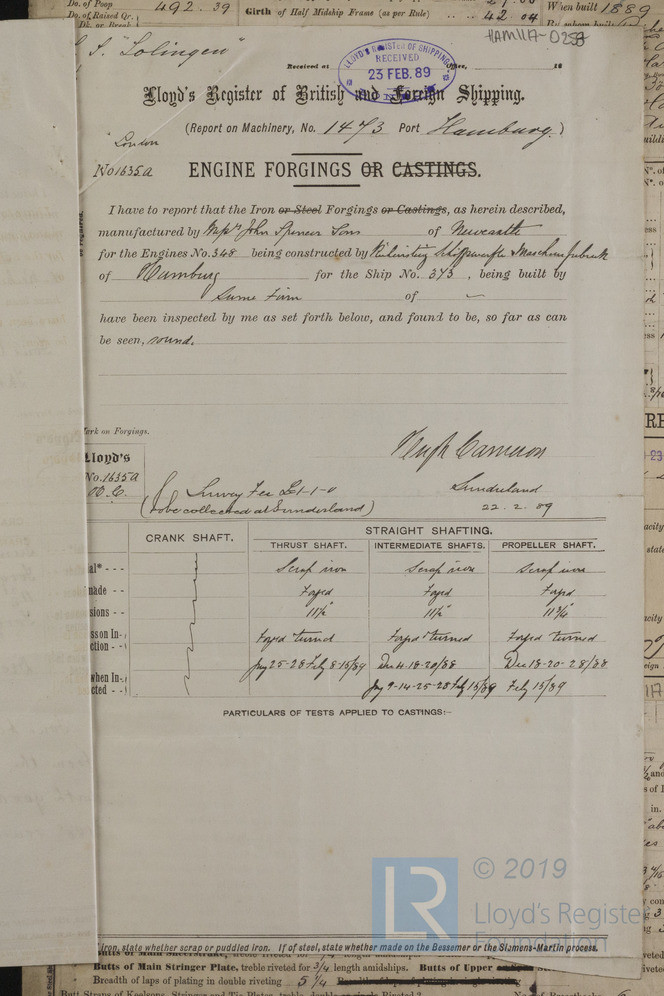 Do. of Poop 492.39
Do. of Raised Qr.
Girth of Half Midship Frame (as per Rule)
42.04
When built 1889
HAM117-0253
S. "Solingen"
Received at
18
LLOYD'S REGISTER OF SHIPPING
RECEIVED
23 FEB. 89
Lloyd's Register of British and Foreign Shipping.
(Report on Machinery, No. 1473 Port Hamburg.)
London
No 1635a
ENGINE FORGINGS OR CASTINGS.
I have to report that the Iron or Steel Forgings or Castings, as herein described,
manufactured by John Spencer Sons of Newcastle
for the Engines No. 348 being constructed by
of Hamburg for the Ship No. 373, being built by
Same Firm of —
have been inspected by me as set forth below, and found to be, so far as can
be seen, sound.
Mark on Forgings.
Lloyd's
No. 1635a
Hugh Cameron
Survey Fee £1-1-0
(to be collected at Sunderland)
Sunderland
22.2.89
CRANK SHAFT.
STRAIGHT SHAFTING.
THRUST SHAFT. INTERMEDIATE SHAFTS. PROPELLER SHAFT.
Scrap iron Scrap iron Scrap iron
made Forged Forged Forged
sions 11½" 11½" 11¾"
Forged turned Forged & turned Forged turned
ction
Jany 25-28 Feby 8-15/89 Dec 4-18-20/88 Dec 18-20-28/88
when In-
cted
Jany 9-14-25-28 Feby 15/89 Feby 15/89
PARTICULARS OF TESTS APPLIED TO CASTINGS:—
© 2019
LR
Lloyd's Register
Foundation
iron, state whether scrap or puddled iron. If of steel, state whether made on the Bessemer or the Siemens-Martin process.
Butts of Main Stringer Plate, treble riveted for 3/4 length amidships. Butts of Upper
Breadth of laps of plating in double riveting 5 1/4